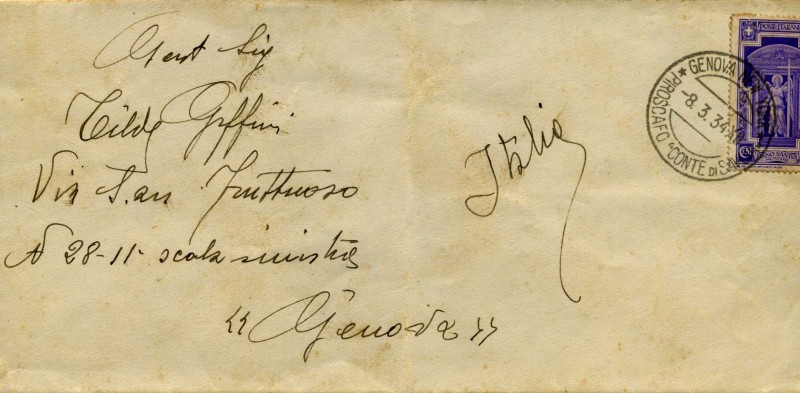 Gent Sig
Tilde Giffini
Via San Fruttuoso
N 28-11- scala sinistra
"Genova"
Italia
GENOVA
-8.3.34.XII
PIROSCAFO "CONTE DI SA
POSTE ITALIANE
ANNO SANTO
CENT